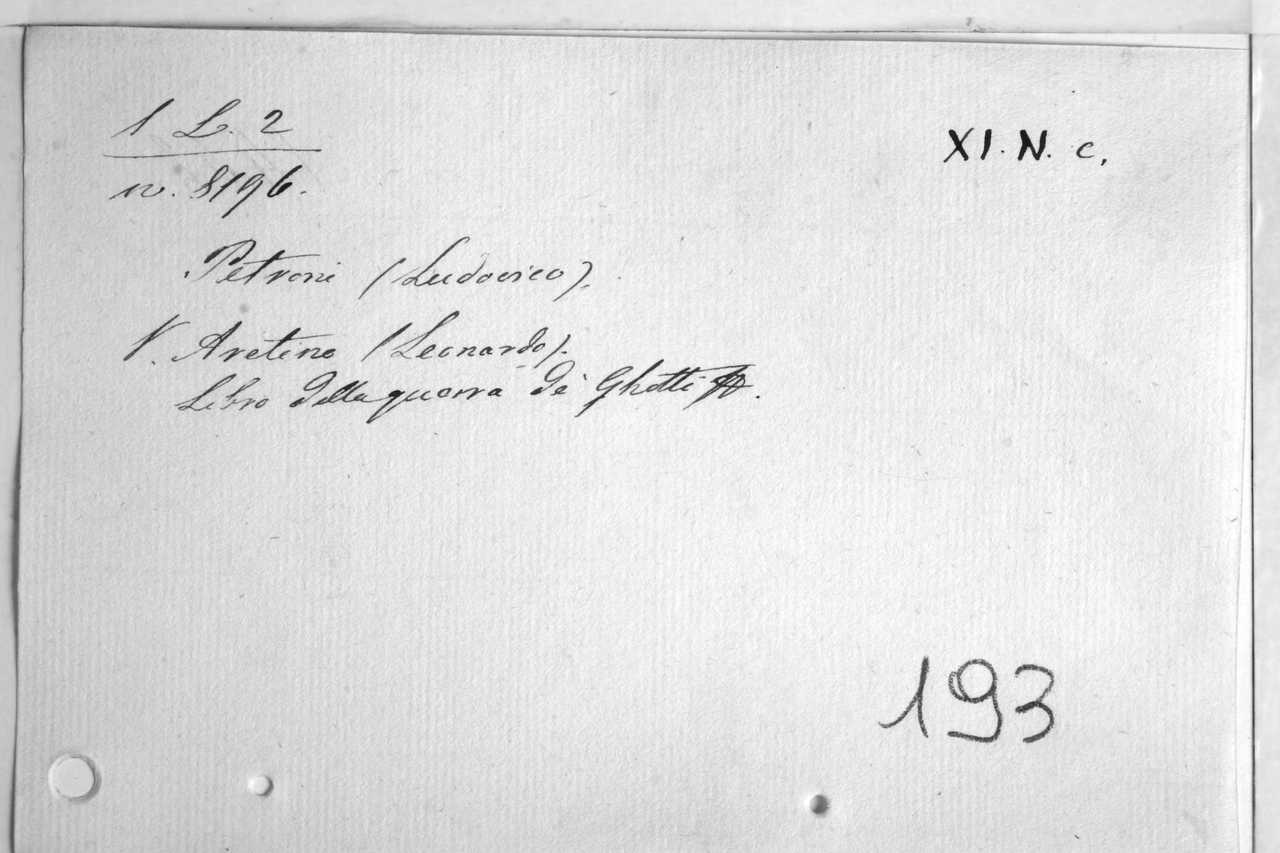 1 L. 2
XI. N. c.
n. 8196.
Petroni (Ludovico).
V. Aretino (Leonardo).
Libro della guerra de' Ghotti
193